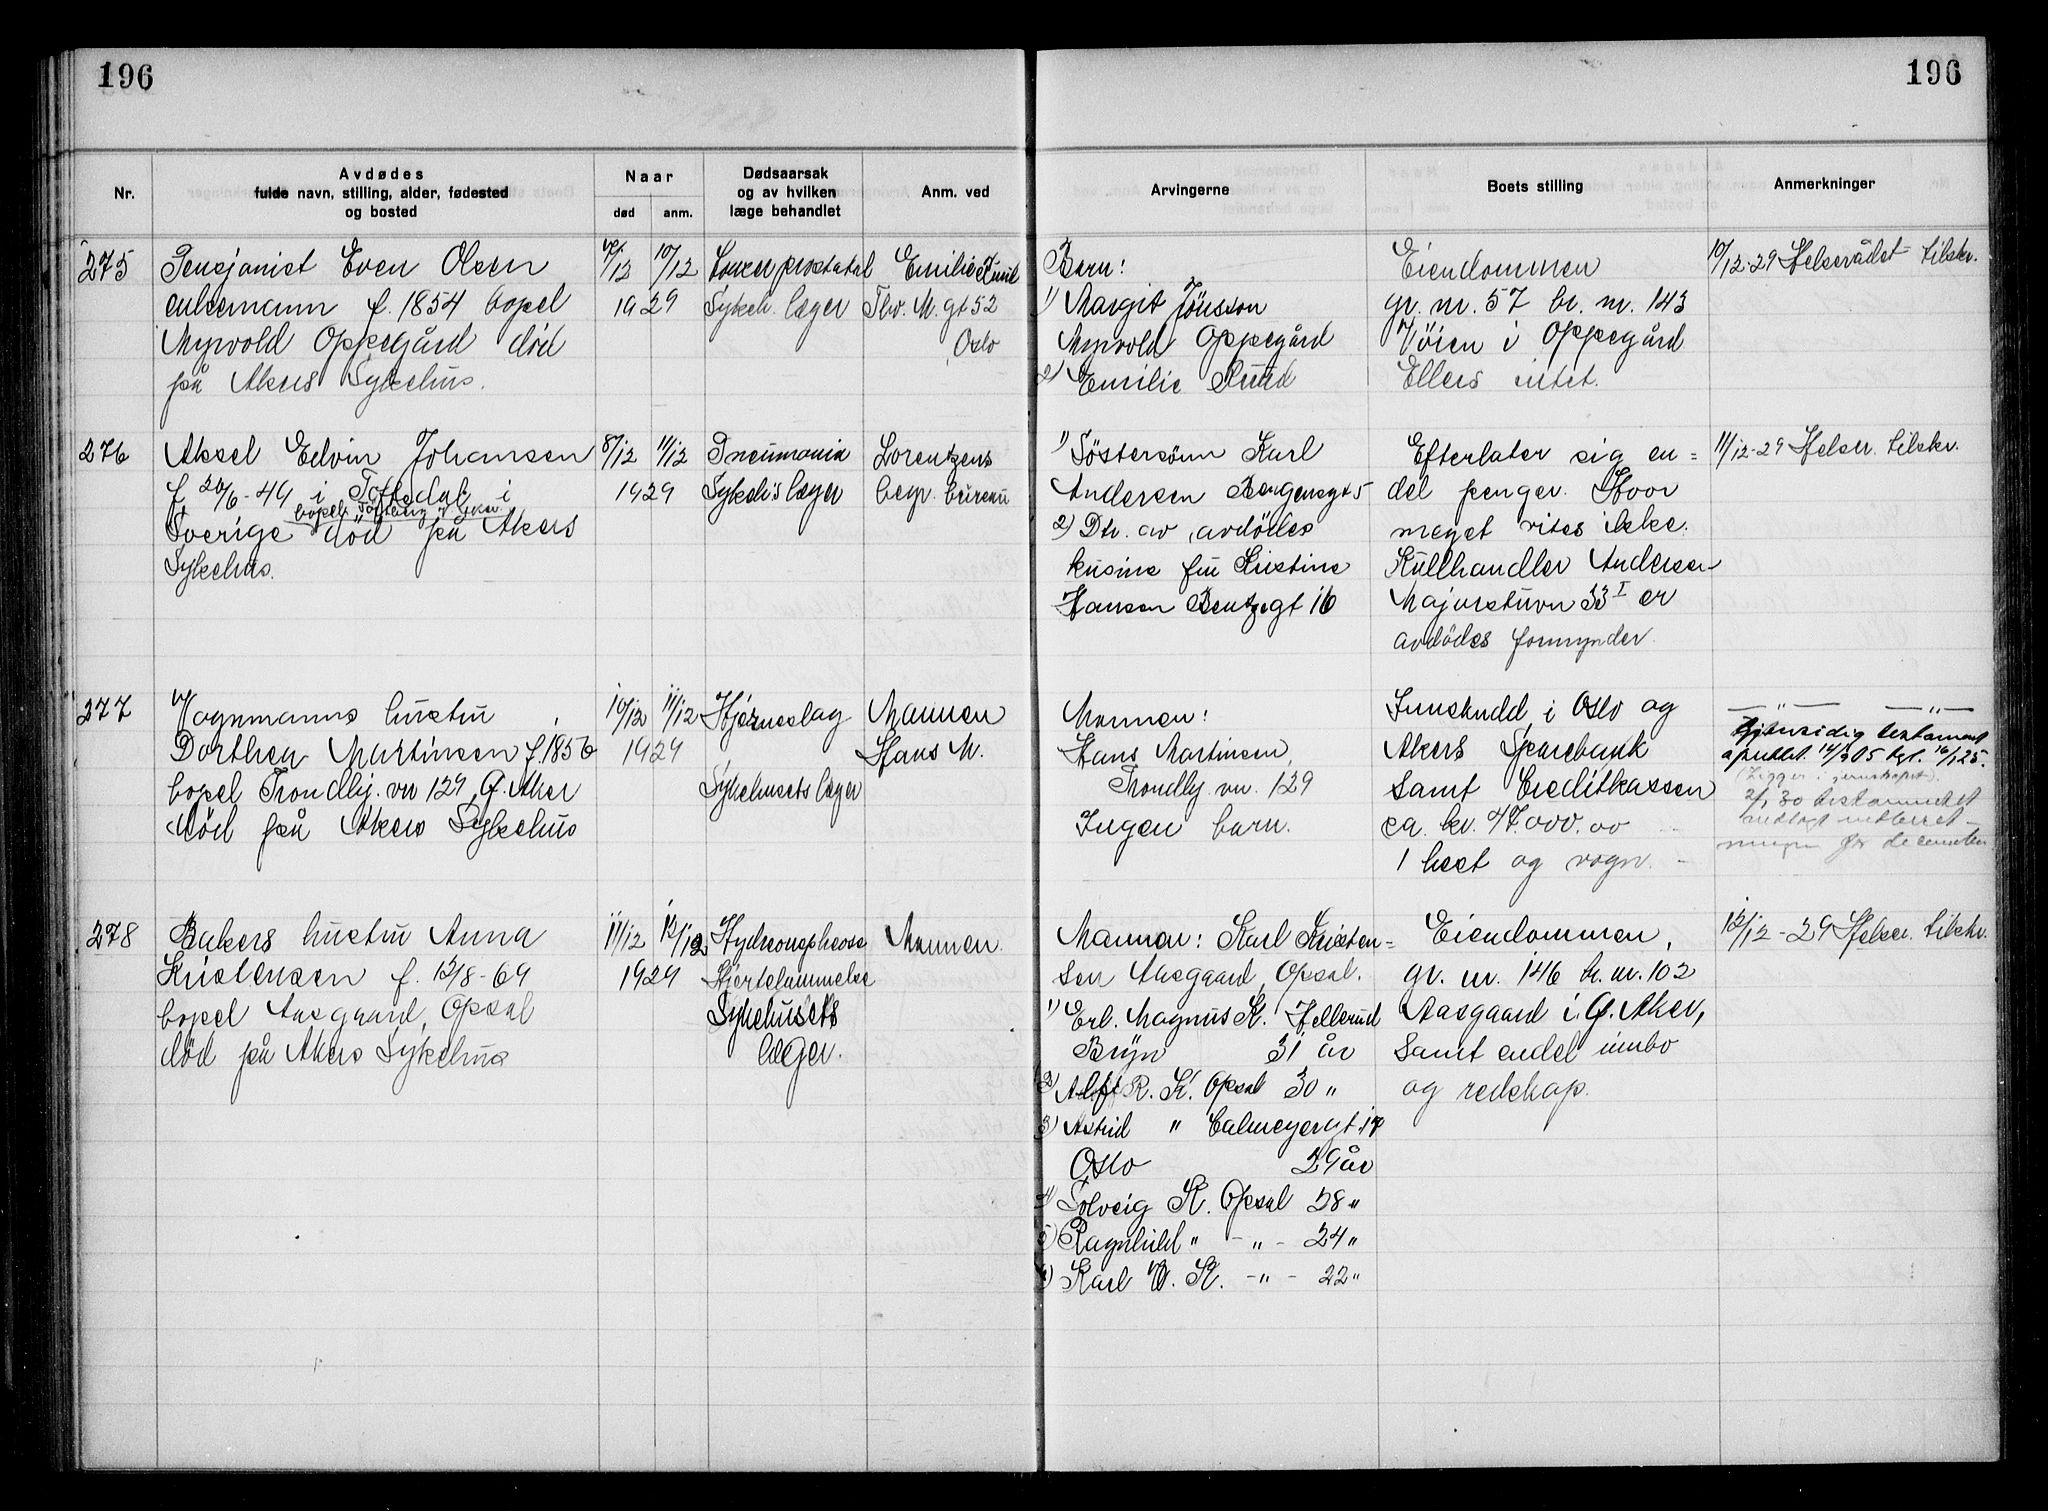 196
196
Nr.
Avdødes
fulde navn, stilling, alder, fødested
og bosted
Naar
død
anm.
Dødsaarsak
og av hvilken
læge behandlet
Anm. ved
Arvingerne
Boets stilling
Anmerkninger
275
Pensjonist Even Olsen
enkemann f. 1854 bopel
Myrvold Oppegård död
på Akers Sykehus.
10/12
1929
Cancer prostatal
Sykeh. læger
Emilie Ruud
Thv. M. gt 52
Oslo
Barn:
1) Margit Jönsson
Myrvold Oppegård
2) Emilie Ruud
Eiendommen
gr. nr. 57 br. nr. 143
i Oppegård
Ellers intet.
10/12-29 Helserådet tilskr.
276
Aksel Edvin Johansen
f. 20/6-49 i Tossedal i
bopel Torsberg V. Aker
Sverige död på Akers
Sykehus.
8/12 11/12
1929
Pneumonia
Sykeh's læger
Lorentzens
begr. bureau
1) Söstersönn Karl
Andersen Bergensgt 5
2) Dtr. av avdödes
kusine fru Kristine
Hansen Bentzegt 16
Efterlater sig en=
del penger. Hvor
meget vites ikke.
Kullhandler Andersen
Majorstuvn 33 I er
avdödes formynder.
11/12-29 Helser. tilskr.
277
Vognmanns hustru
Dorthea Martinsen f. 1856
bopel Trondhj. vn 129, Ö. Aker
död på Akers Sykehus
10/12 11/12
1929
Hjerneslag
Sykehusets læger
Mannen
Hans M.
Mannen:
Hans Martinsen,
Trondhj. vn. 129
Ingen barn.
Innskudd i Oslo og
Akers Sparebank
samt Creditkassen
ca. kr. 47.000.00
1 hest og vogn.
— " — — " —
Gjensidig testament
oprettet 14/3 05 tgl. 16/1 25.
(Ligger i jernskapet).
2/1 30 testamentet
278
Bakers hustru Anna
Kristensen f. 12/8-69
bopel Aasgaard, Opsal
död på Akers Sykehus
11/12 12/12
1929
Hydronephrose
Hjertelammelse
Sykehusets
læger.
Mannen.
Mannen: Karl Kristen=
sen Aasgaard, Opsal.
1) Erl. Magnus K. Hellerud
Bryn 31 år
2) Alf R. K. Opsal 30 "
3) Astrid " Calmeyergt. 17
Oslo 29 år
4) Solveig K. Opsal 28 "
5) Ragnhild " - " - 24 "
6) Karl O. K. - " - 22 "
Eiendommen,
gr. nr. 146 br. nr. 102
Aasgaard i Ö. Aker,
samt endel innbo
og redskap.
12/12-29 Helser. tilskr.